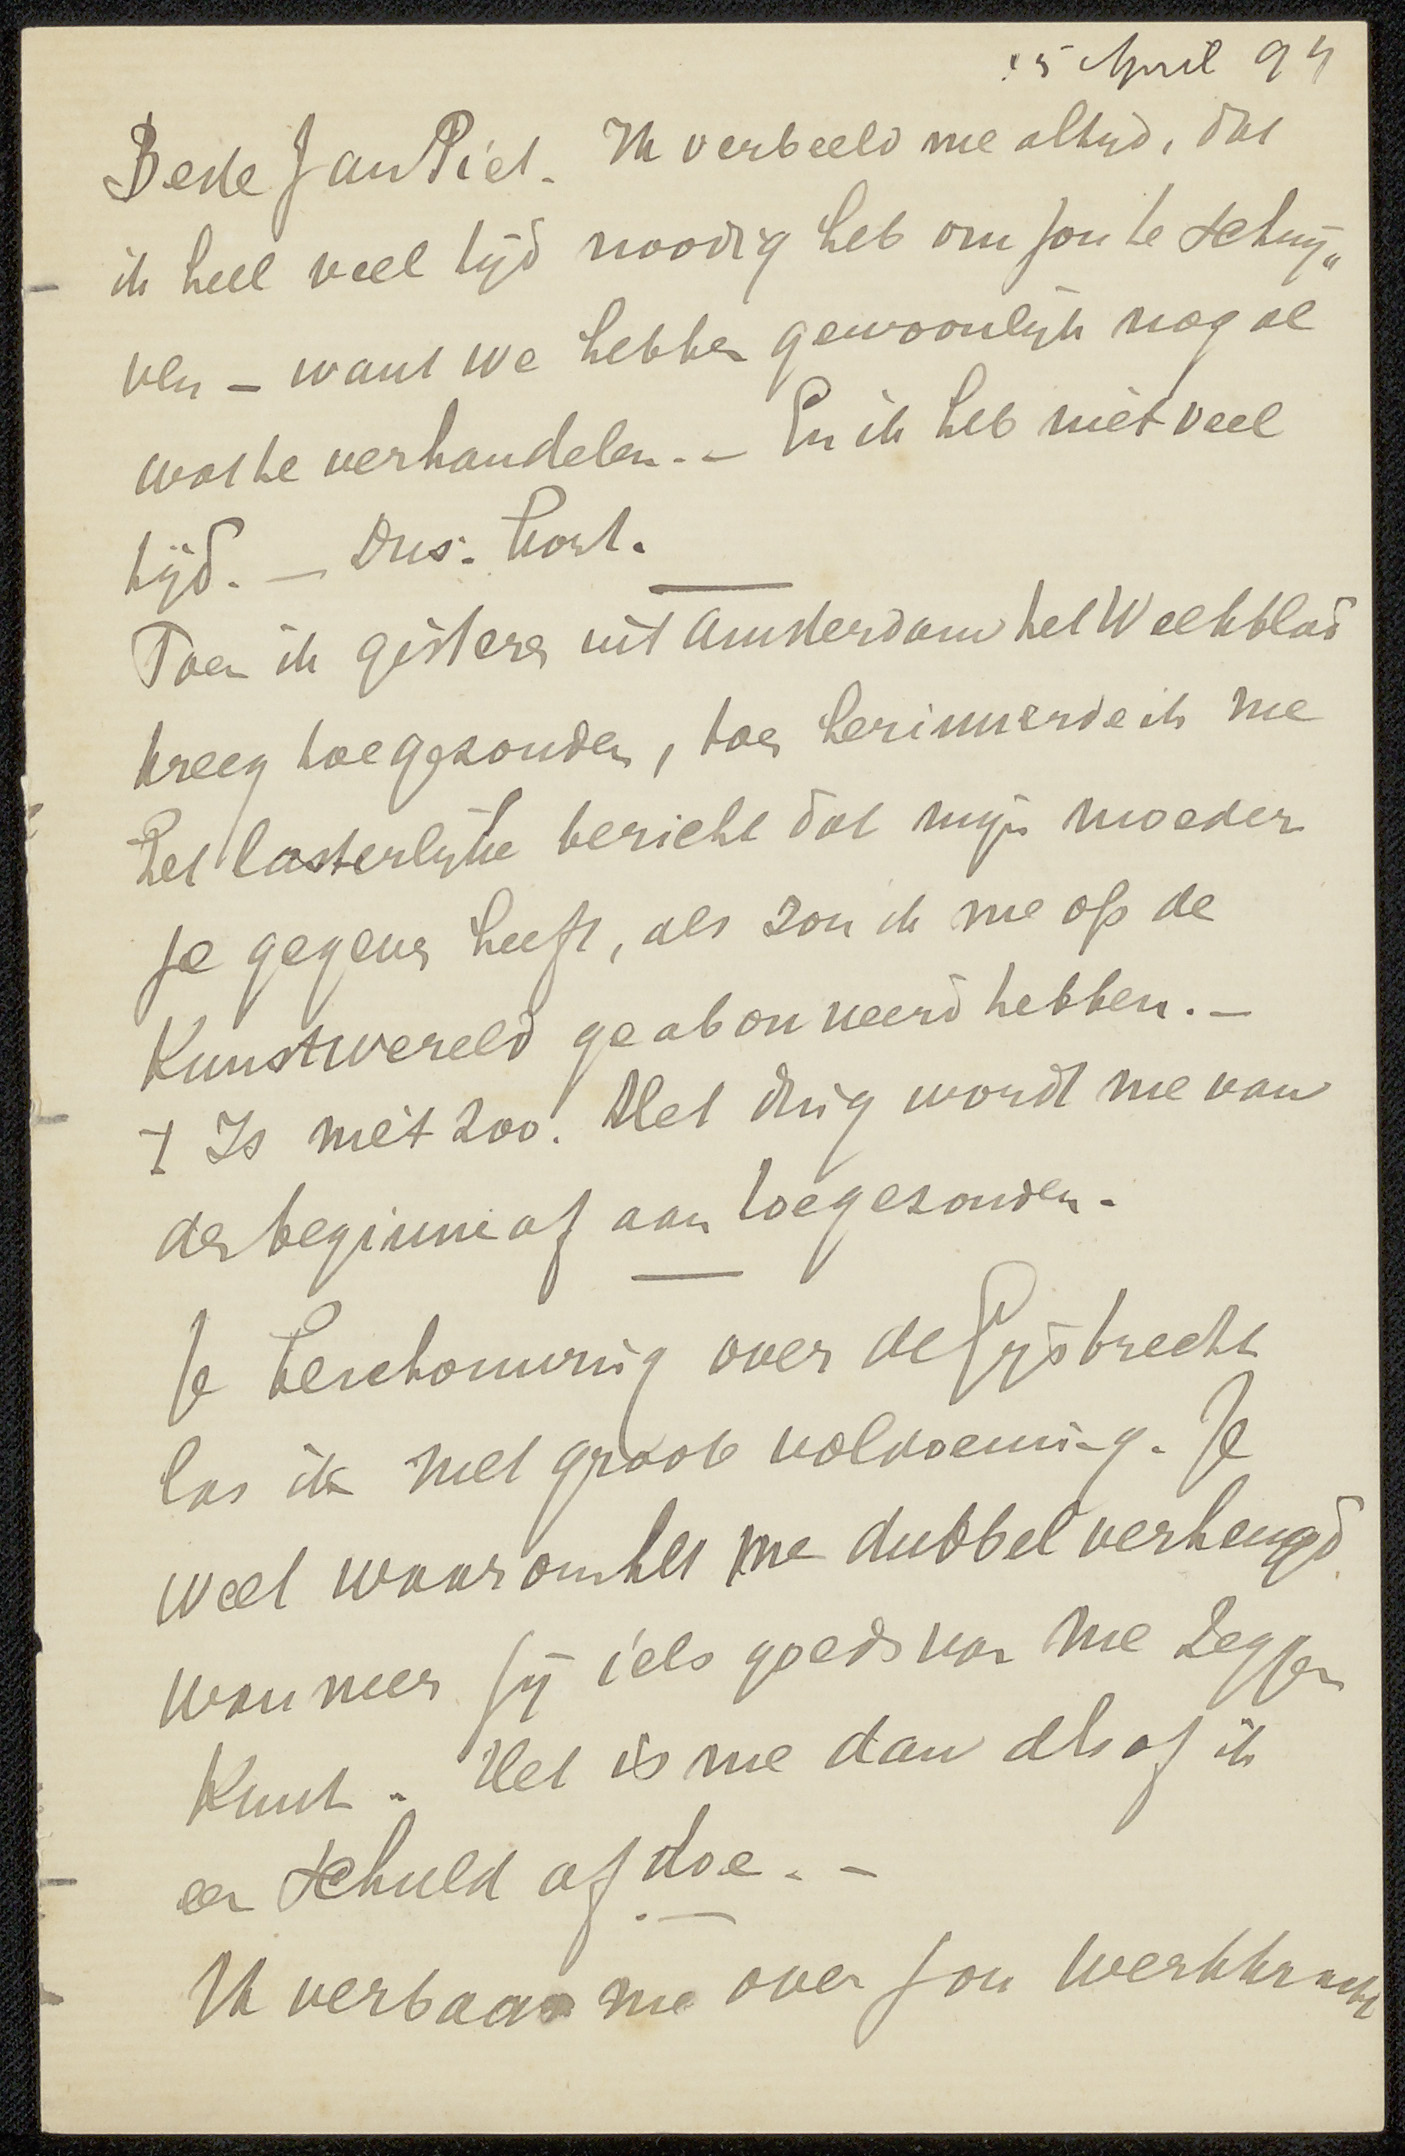 15 April 94
Beste Jan Piet. Ik verbeeld me altijd, dat
ik heel veel tijd noodig heb om jou te schrij„
ven – want we hebben gewoonlijk nog al
wat te verhandelen. – En ik heb niet veel
tijd. – Dus. Kort.
Toen ik gisteren uit Amsterdam het Weekblad
kreeg toegezonden, toen herinnerde ik me
het lasterlijke bericht dat mijn moeder
je gegeven heeft, als zou ik me op de
Kunstwereld geabonneerd hebben. –
't Is niet zoo. Het ding wordt me van
den beginne af aan toegezonden.
Je beschouwing over de Gijsbrecht
las ik met groote voldoening. Je
weet waarom het me dubbel verheugd
wanneer jij iets goeds van me zeggen
kunt. Het is me dan alsof ik
een schuld af doe. –
Ik verbaas me over jou werkkracht